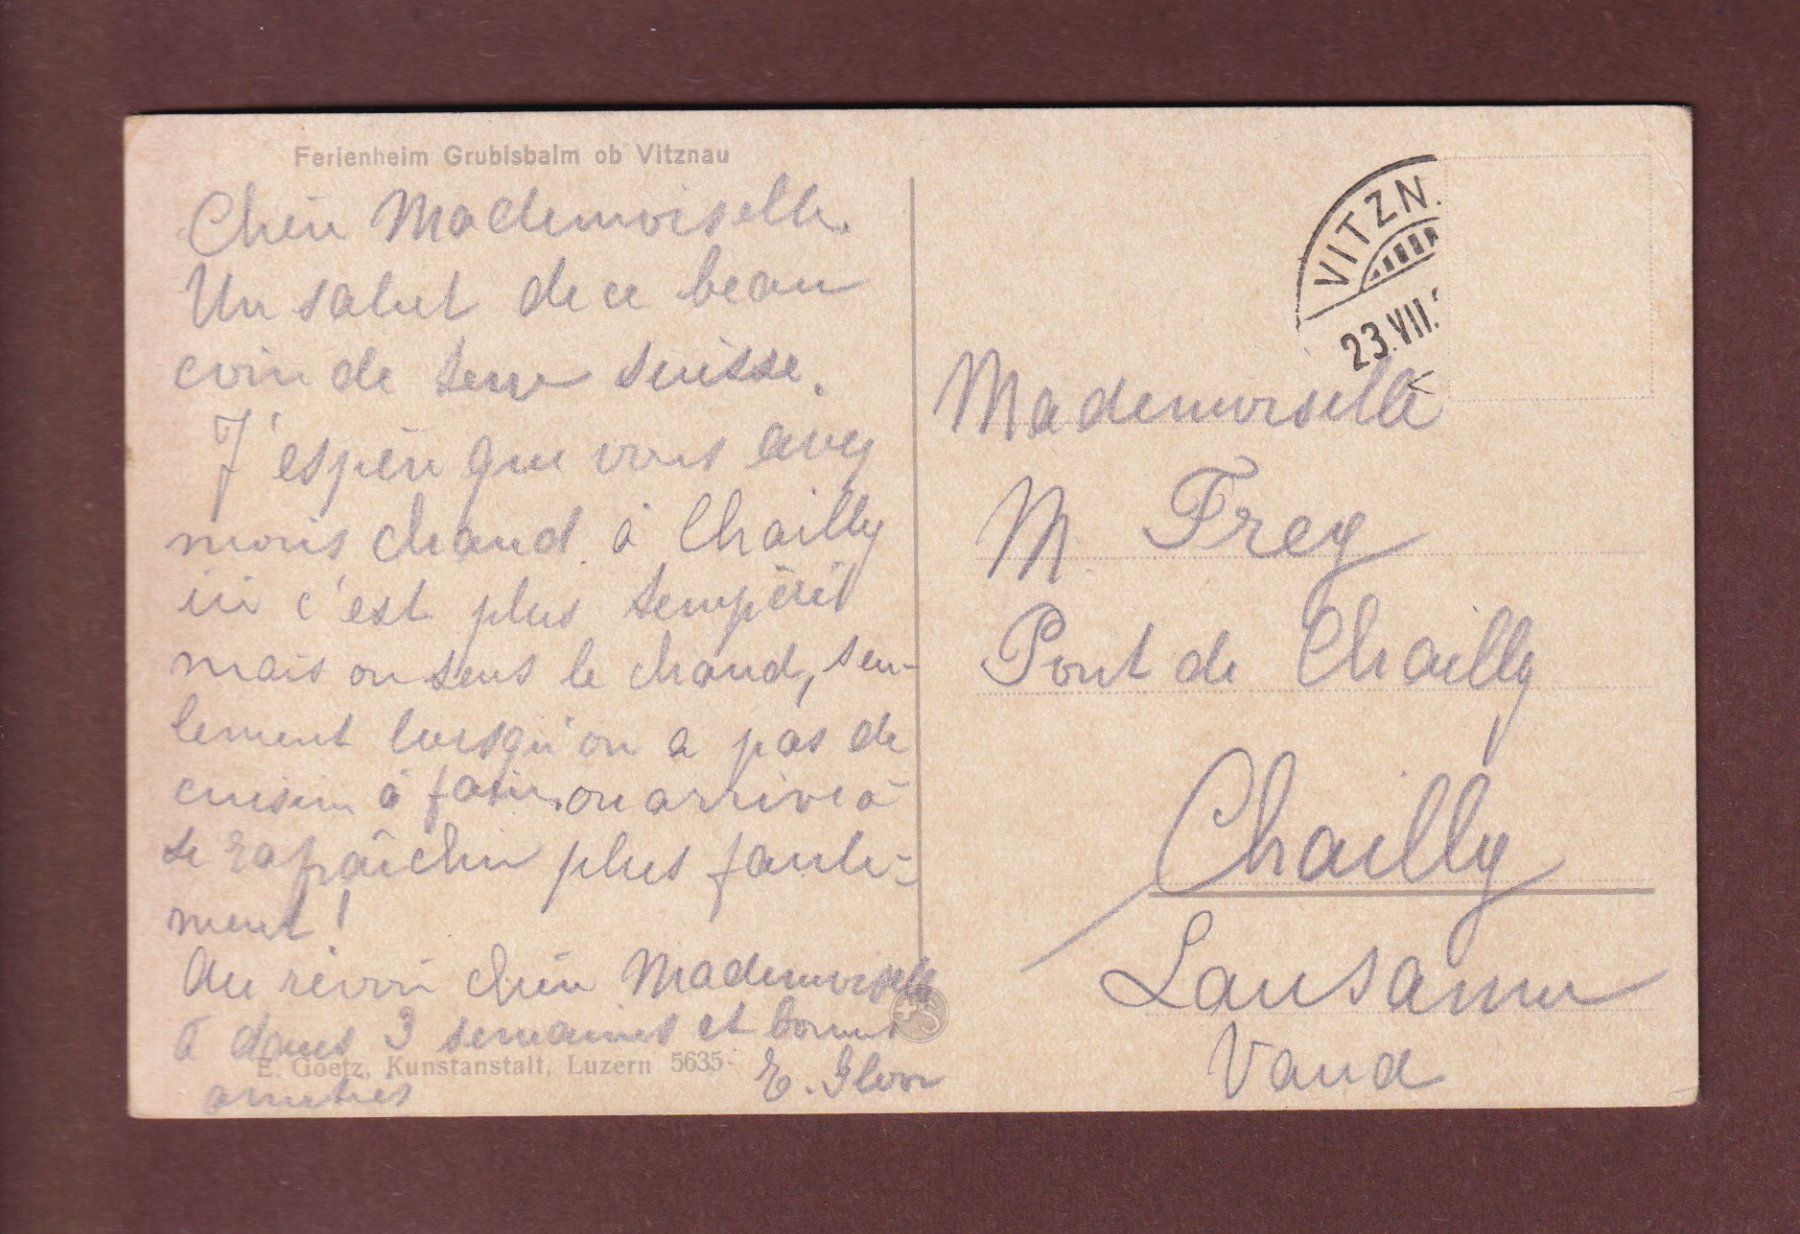 Ferienheim Grubisbalm ob Vitznau
Chère Mademoiselle.
Un salut de ce beau
coin de terre suisse.
J'espère que vous avez
moins chaud à Chailly
ici c'est plus tempéré
mais on sens le chaud, seu-
lement lorsqu'on a pas de
cuisine à faire, on arrive à
se rafraîchir plus facile-
ment!
Au revoir chère Mademoiselle
à dans 3 semaines et bonnes
amitiés
E. Goetz, Kunstanstalt, Luzern 5635
VITZN.
23.VII.
Mademoiselle
M. Frey
Pont de Chailly
Chailly
Lausanne
Vaud